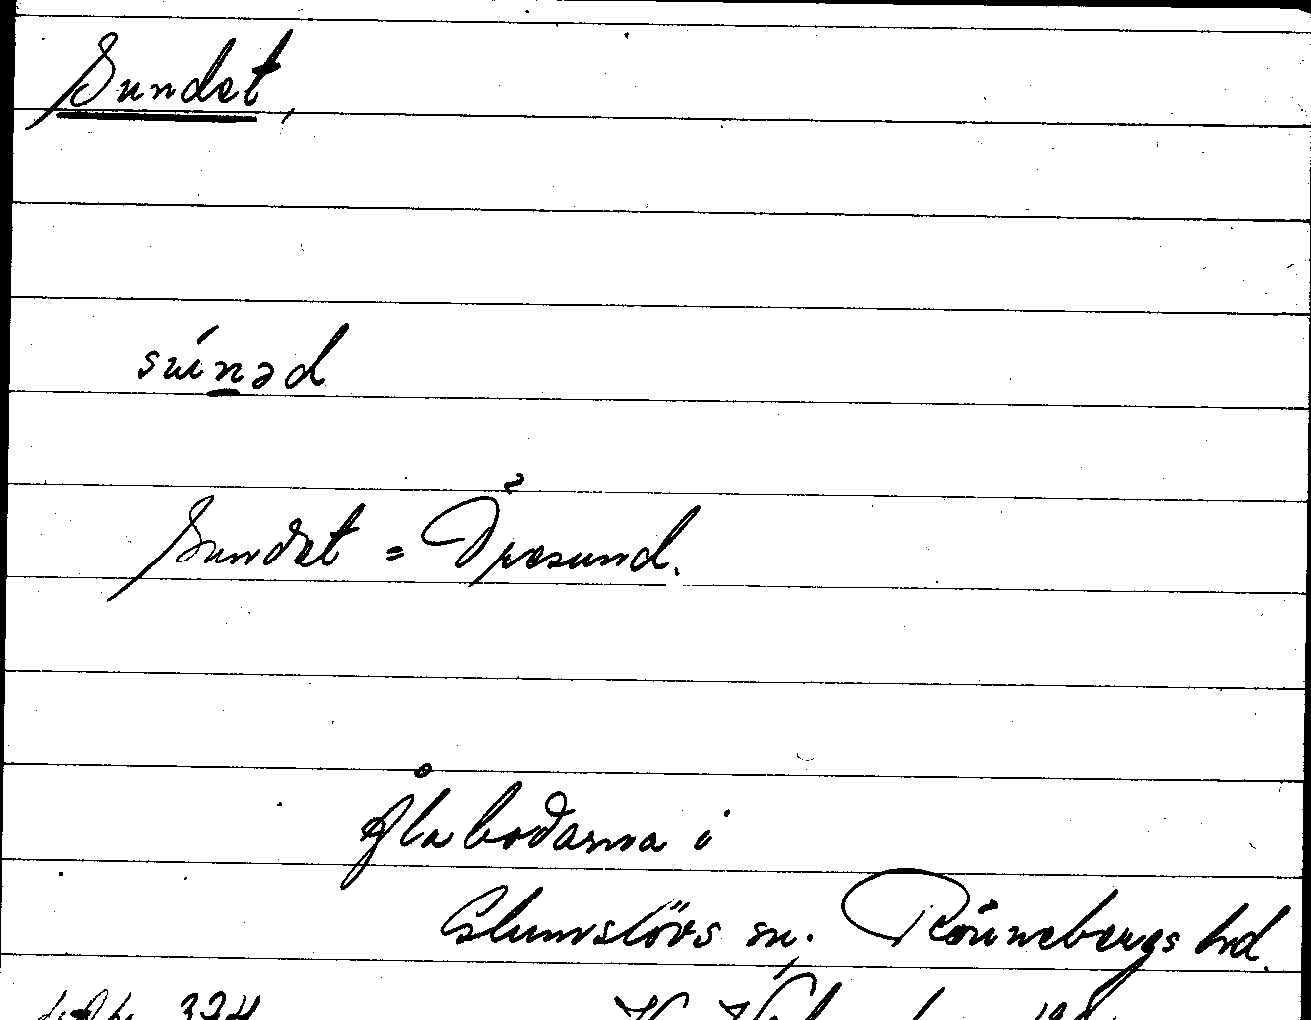 Sundet,
súnəd
Sundet = Öresund.
Ålabodarna i
Glumslövs sn, Rönnebergs hd.